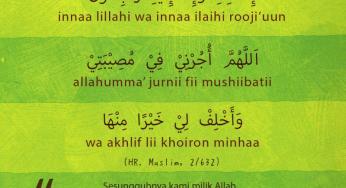 innaa lillahi wa innaa ilaihi rooji'uun
اَللَّهُمَّ أُجُرْنِيْ فِيْ مُصِيْبَتِيْ
allahumma' jurnii fii mushiibatii
وَأَخْلِفْ لِيْ خَيْرًا مِنْهَا
wa akhlif lii khoiron minhaa
(HR. Muslim, 2/632)
Sesungguhnya kami milik Allah